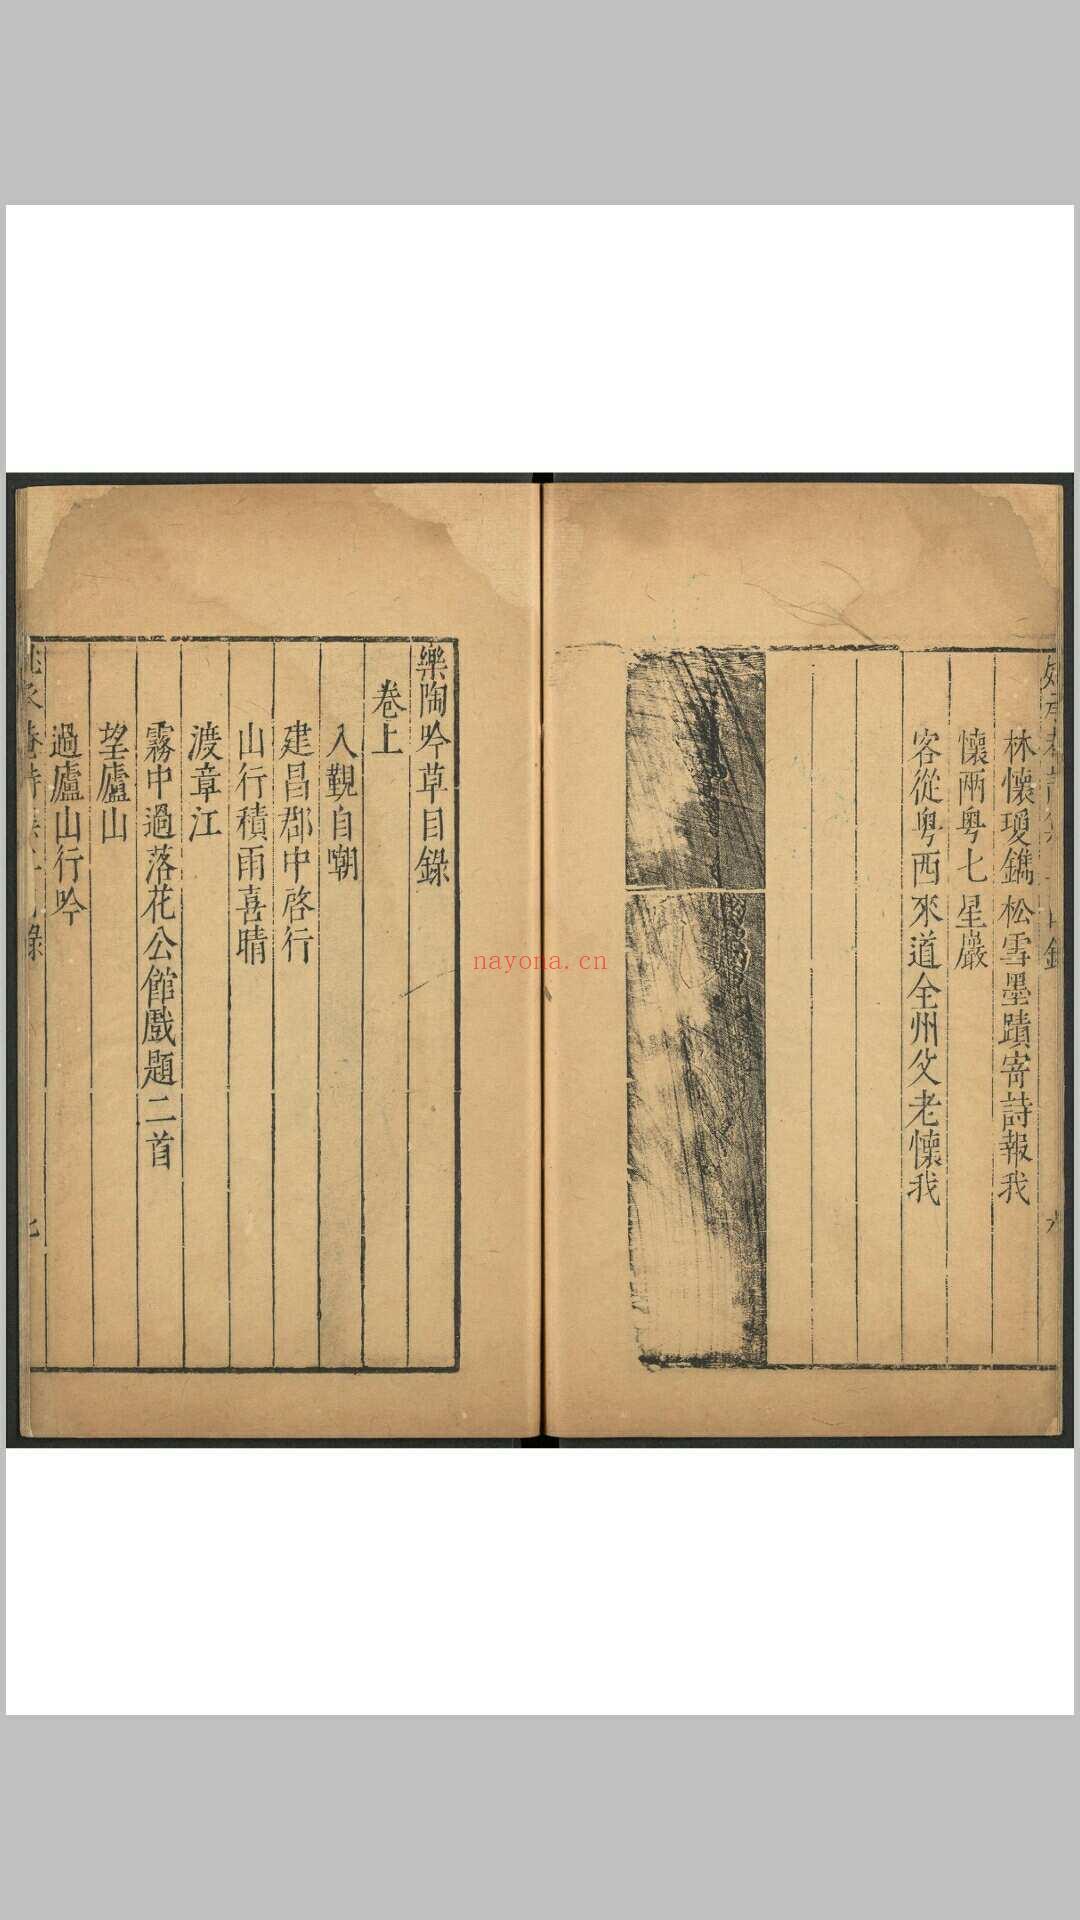 林懷瓊鐫松雪墨蹟寄詩報我
懷兩粵七星巖
客從粵西來道全州父老懷我
樂陶吟草目錄
卷上
入覲自嘲
建昌郡中啓行
山行積雨喜晴
渡章江
霧中過落花公館戲題二首
望廬山
過廬山行吟
nayona.cn